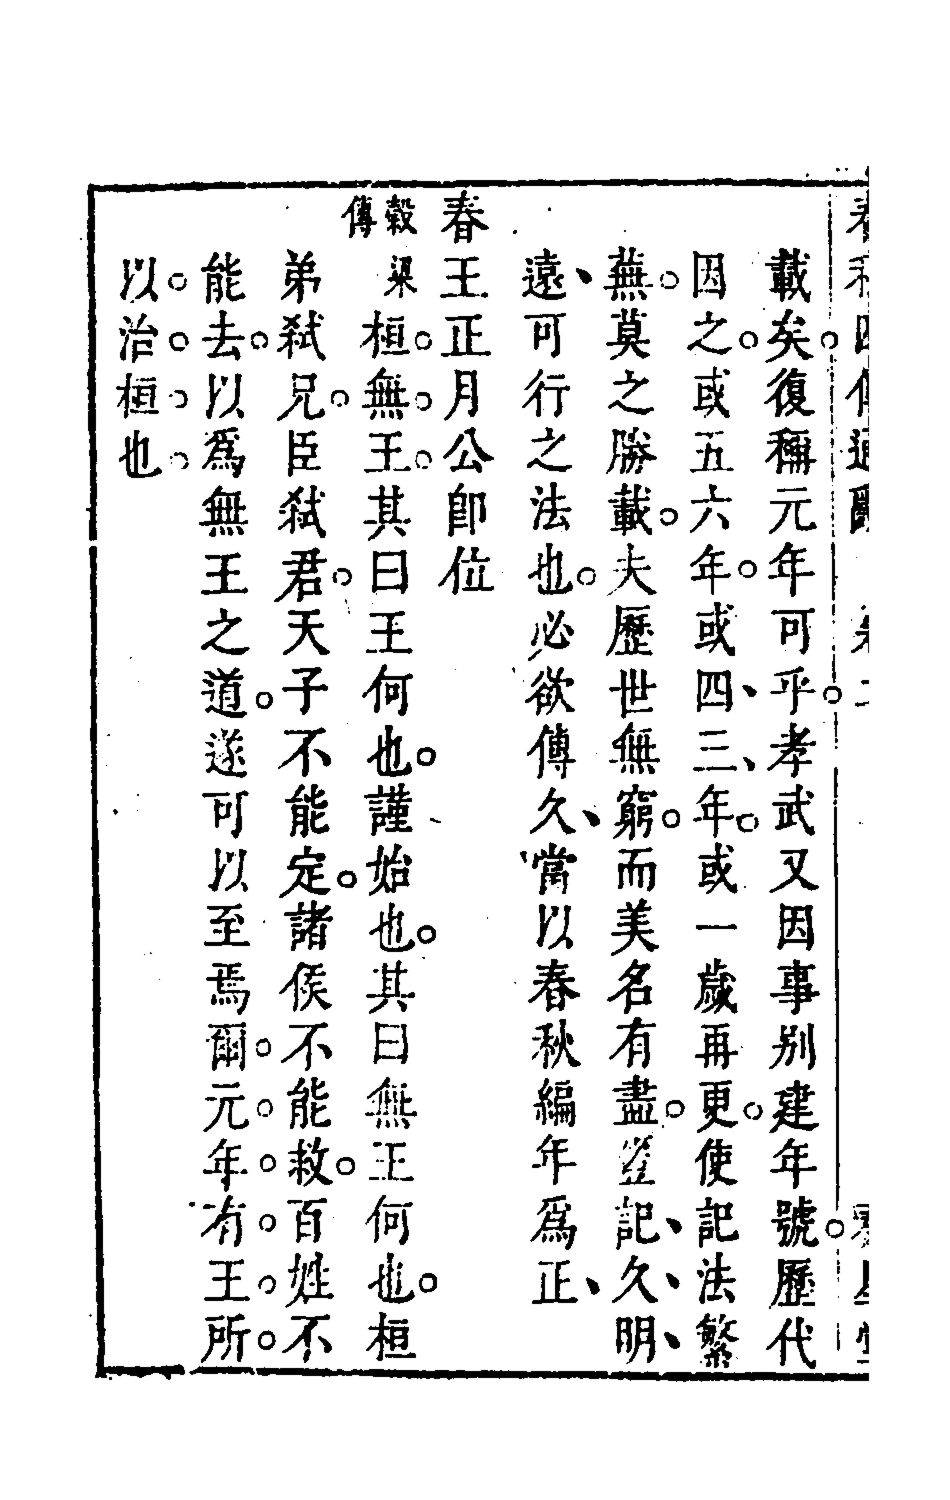 載矣復稱元年可乎孝武又因事别建年號歷代
因之或五六年或四三年或一歲再更使記法繁
蕪莫之勝載夫歷世無窮而美名有盡豈記久明
遠可行之法也必欲傳久當以春秋編年爲正
春王正月公即位
穀梁傳
桓無王其曰王何也謹始也其曰無王何也桓
弟弑兄臣弑君天子不能定諸侯不能救百姓不
能去以爲無王之道遂可以至焉爾元年有王所
以治桓也